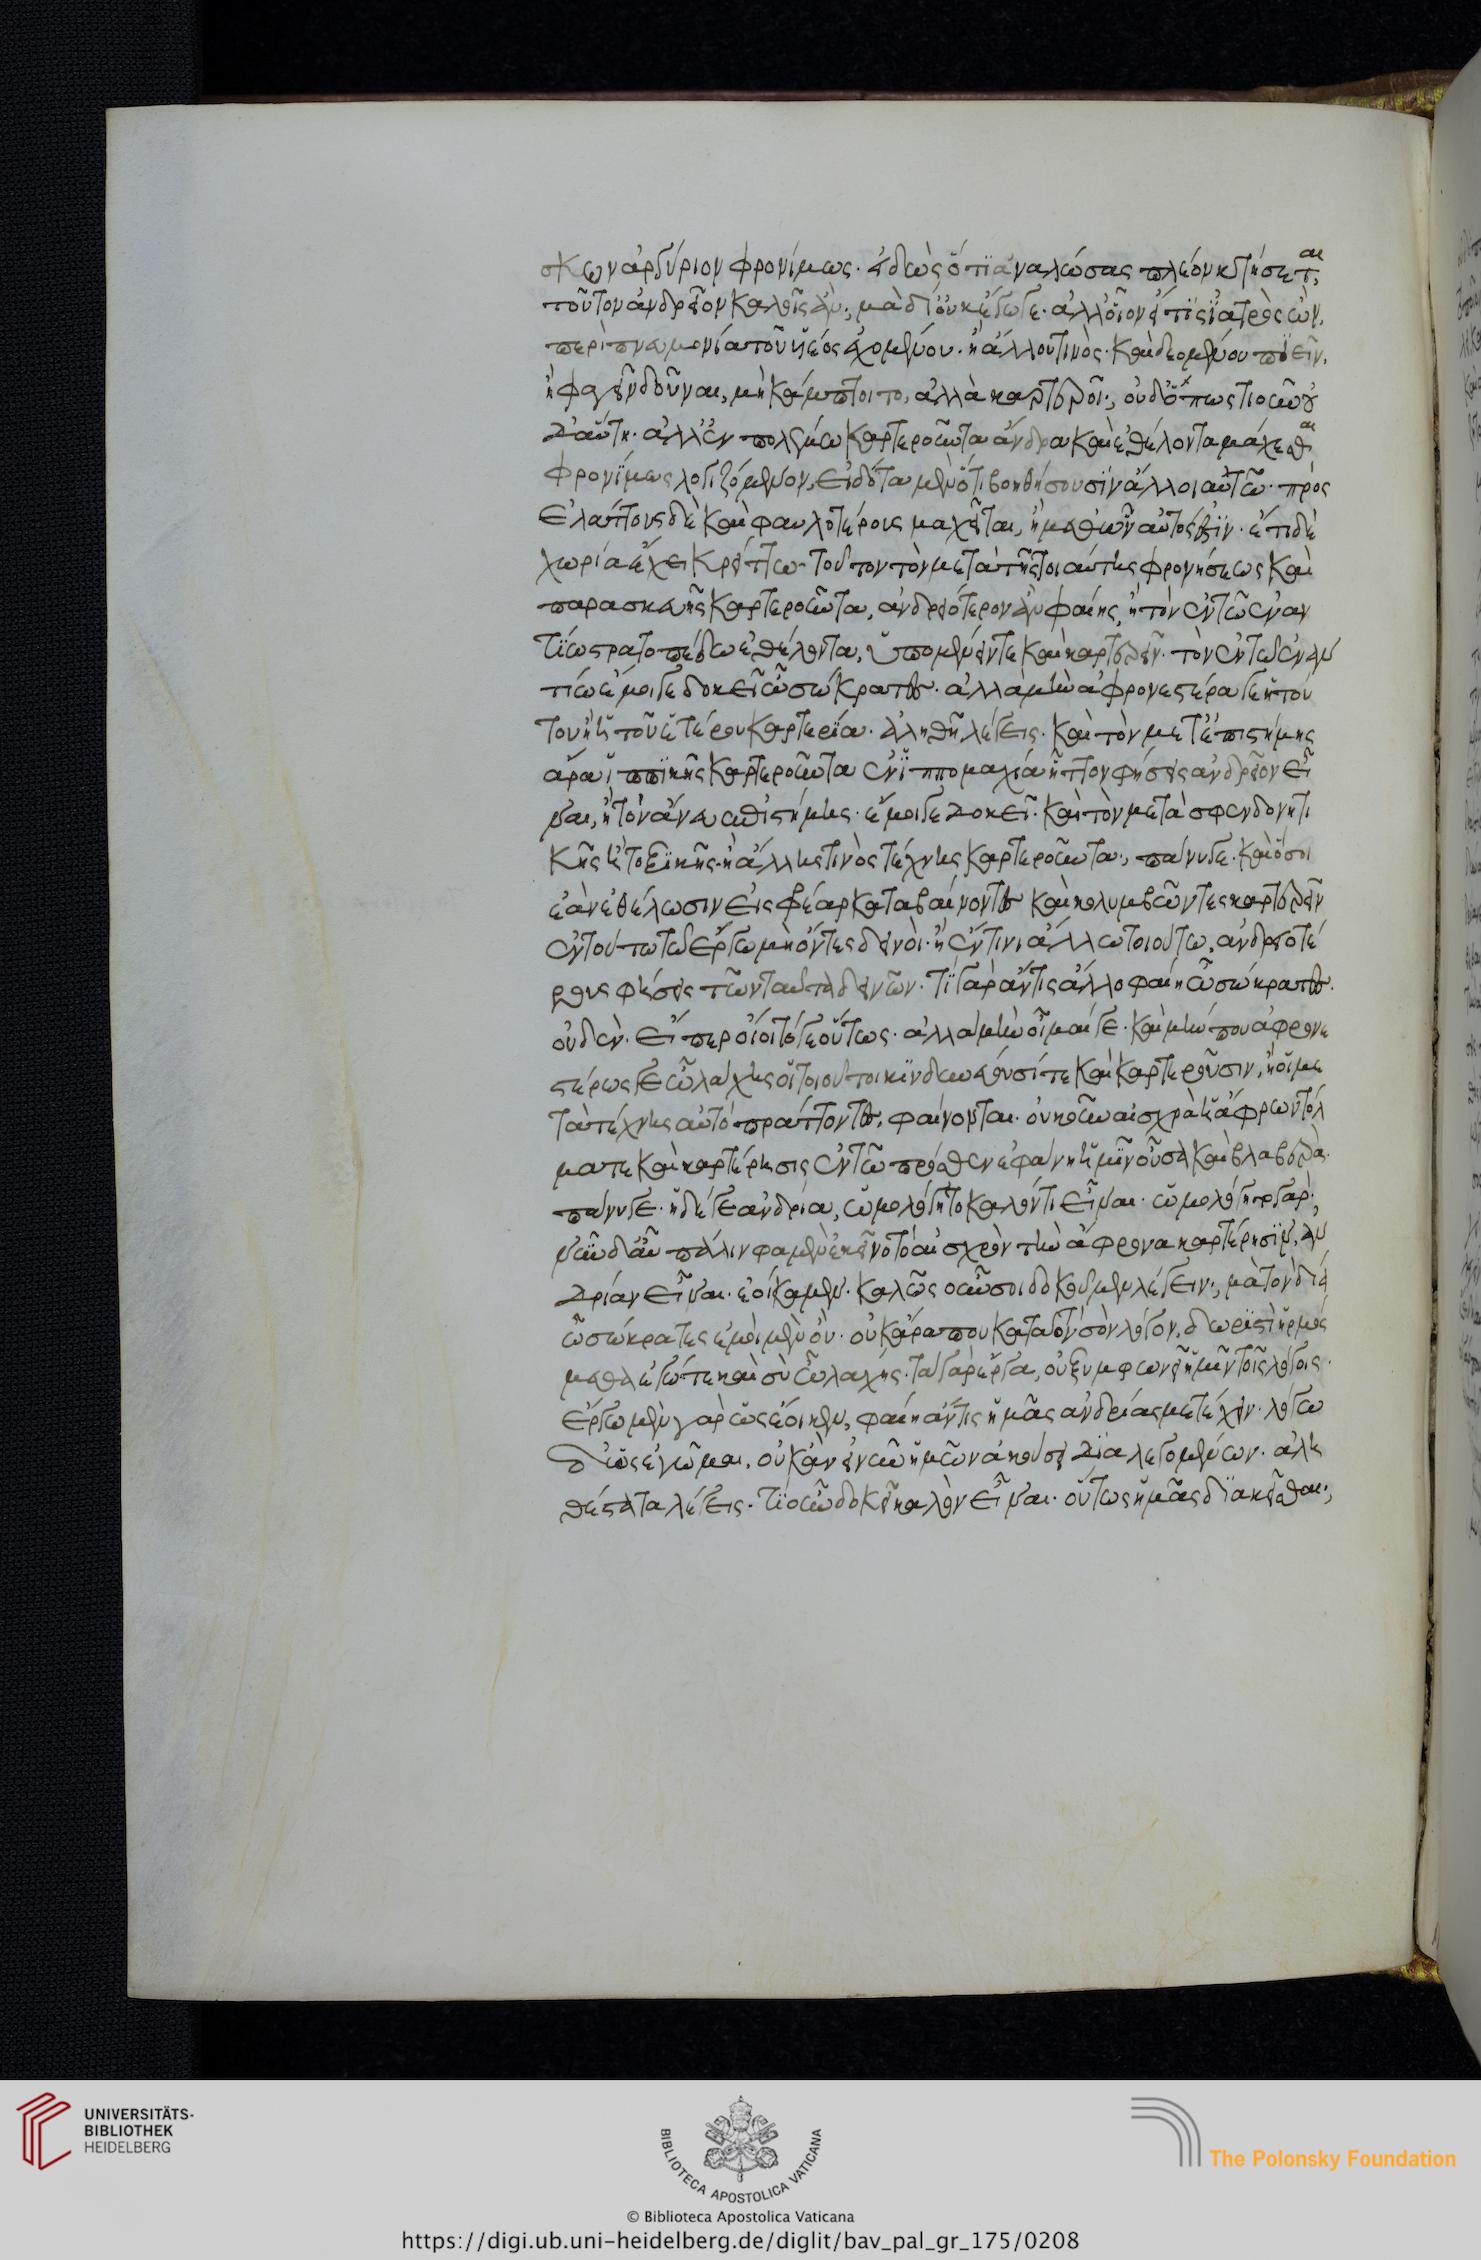 σκων ἀργύριον φρονίμως. εἰδὼς ὅτι ἀναλώσας πλέον κτήσεται,
τοῦτον ἀνδρεῖον καλοῖς ἄν; μὰ δί' οὐκ ἔγωγε. ἀλλ' οἷον εἴ τις ἰατρὸς ὢν,
περιπνευμονία τοῦ ὑέος ἐχομένου. ἢ ἄλλου τινὸς. καὶ δεομένου πιεῖν,
ἢ φαγεῖν δοῦναι, μὴ κάμπτοιτο, ἀλλὰ καρτεροῖ; οὐδ' ὁπωστιοῦν οὐ
δ' αὕτη. ἀλλ' ἐν πολέμω καρτεροῦντα ἄνδρα καὶ ἐθέλοντα μάχεσθαι
φρονίμως λογιζόμενον, εἰδότα μὲν ὅτι βοηθήσουσιν ἄλλοι αὐτῶ. πρὸς
ἐλάττους δὲ καὶ φαυλοτέρους μαχεῖται, ἢ μεθ' ὧν αὐτός ἐστιν. ἔτι δὲ
χωρία ἔχει κρείττω. τοῦτον τὸν μετὰ τῆς τοιαύτης φρονήσεως καὶ
παρασκευῆς καρτεροῦντα, ἀνδρειότερον ἂν φαίης, ἢ τὸν ἐν τῶ ἐναν
τίω στρατοπέδω ἐθέλοντα, ὑπομένειν τε καὶ καρτερεῖν. τὸν ἐν τῶ ἐναν
τίω ἔμοιγε δοκεῖ ὦ σώκρατες. ἀλλὰ μὴν ἀφρονεστέρα γε ἡ τού
του ἢ ἡ τοῦ ἑτέρου καρτερία. ἀληθῆ λέγεις. καὶ τὸν μετ' ἐπιστήμης
ἄρα ἱππικῆς καρτεροῦντα ἐν ἱππομαχία ἧττον φήσεις ἀνδρεῖον εἶ
ναι, ἢ τὸν ἄνευ ἐπιστήμης. ἔμοιγε δοκεῖ. καὶ τὸν μετὰ σφενδονητι
κῆς ἢ τοξικῆς. ἢ ἄλλης τινὸς τέχνης καρτεροῦντα; πάνυ γε. καὶ ὅσοι
ἐὰν ἐθέλωσιν εἰς φρέαρ καταβαίνοντες καὶ κολυμβῶντες καρτερεῖν
ἐν τούτω τῶ ἔργω μὴ ὄντες δεινοὶ. ἢ ἔν τινι ἄλλω τοιούτω, ἀνδρειοτέ
ρους φήσεις τῶν ταῦτα δεινῶν. τί γὰρ ἄν τις ἄλλο φαίη ὦ σώκρατες.
οὐδὲν. εἴπερ οἴοιτό γε οὕτως. ἀλλὰ μὴν οἶμαί γε. καὶ μήν που ἀφρονε
στέρως γε ὦ λάχης οἱ τοιοῦτοι κινδυνεύουσί τε καὶ καρτεροῦσιν, ἢ οἱ με
τὰ τέχνης αὐτὸ πράττοντες. φαίνονται. οὐκοῦν αἰσχρὰ ἡ ἄφρων τόλ
μα τε καὶ καρτέρησις ἐν τῶ πρόσθεν ἐφάνη ἡμῖν οὖσα καὶ βλαβερὰ.
πάνυ γε. ἡ δέ γε ἀνδρία, ὡμολογεῖτο καλόν τι εἶναι. ὡμολογεῖτο γὰρ.
νῦν δ' αὖ πάλιν φαμὲν ἐκεῖνο τὸ αἰσχρὸν τὴν ἄφρονα καρτέρησιν, ἀν
δρίαν εἶναι. ἐοίκαμεν. καλῶς οὖν σοι δοκοῦμεν λέγειν; μὰ τὸν δία
ὦ σώκρατες ἐμοὶ μὲν οὔ. οὐκ ἄρα που κατὰ τὸν σὸν λόγον, δωριστὶ ἡρμόσ
μεθα ἐγώ τε καὶ σὺ ὦ λάχης. τὰ γὰρ ἔργα, οὐ ξυμφωνεῖ ἡμῖν τοῖς λόγοις.
ἔργω μὲν γὰρ ὡς ἔοικεν, φαίη ἄν τις ἡμᾶς ἀνδρίας μετέχειν. λόγω
δ' ὡς ἐγῶμαι, οὐκ ἂν εἰ νῦν ἡμῶν ἀκούσει διαλεγομένων. ἀλη
θέστατα λέγεις. τί οὖν δοκεῖ καλὸν εἶναι. οὕτως ἡμᾶς διακεῖσθαι;
UNIVERSITÄTS-
BIBLIOTHEK
HEIDELBERG
BIBLIOTECA APOSTOLICA VATICANA
The Polonsky Foundation
© Biblioteca Apostolica Vaticana
https://digi.ub.uni-heidelberg.de/diglit/bav_pal_gr_175/0208